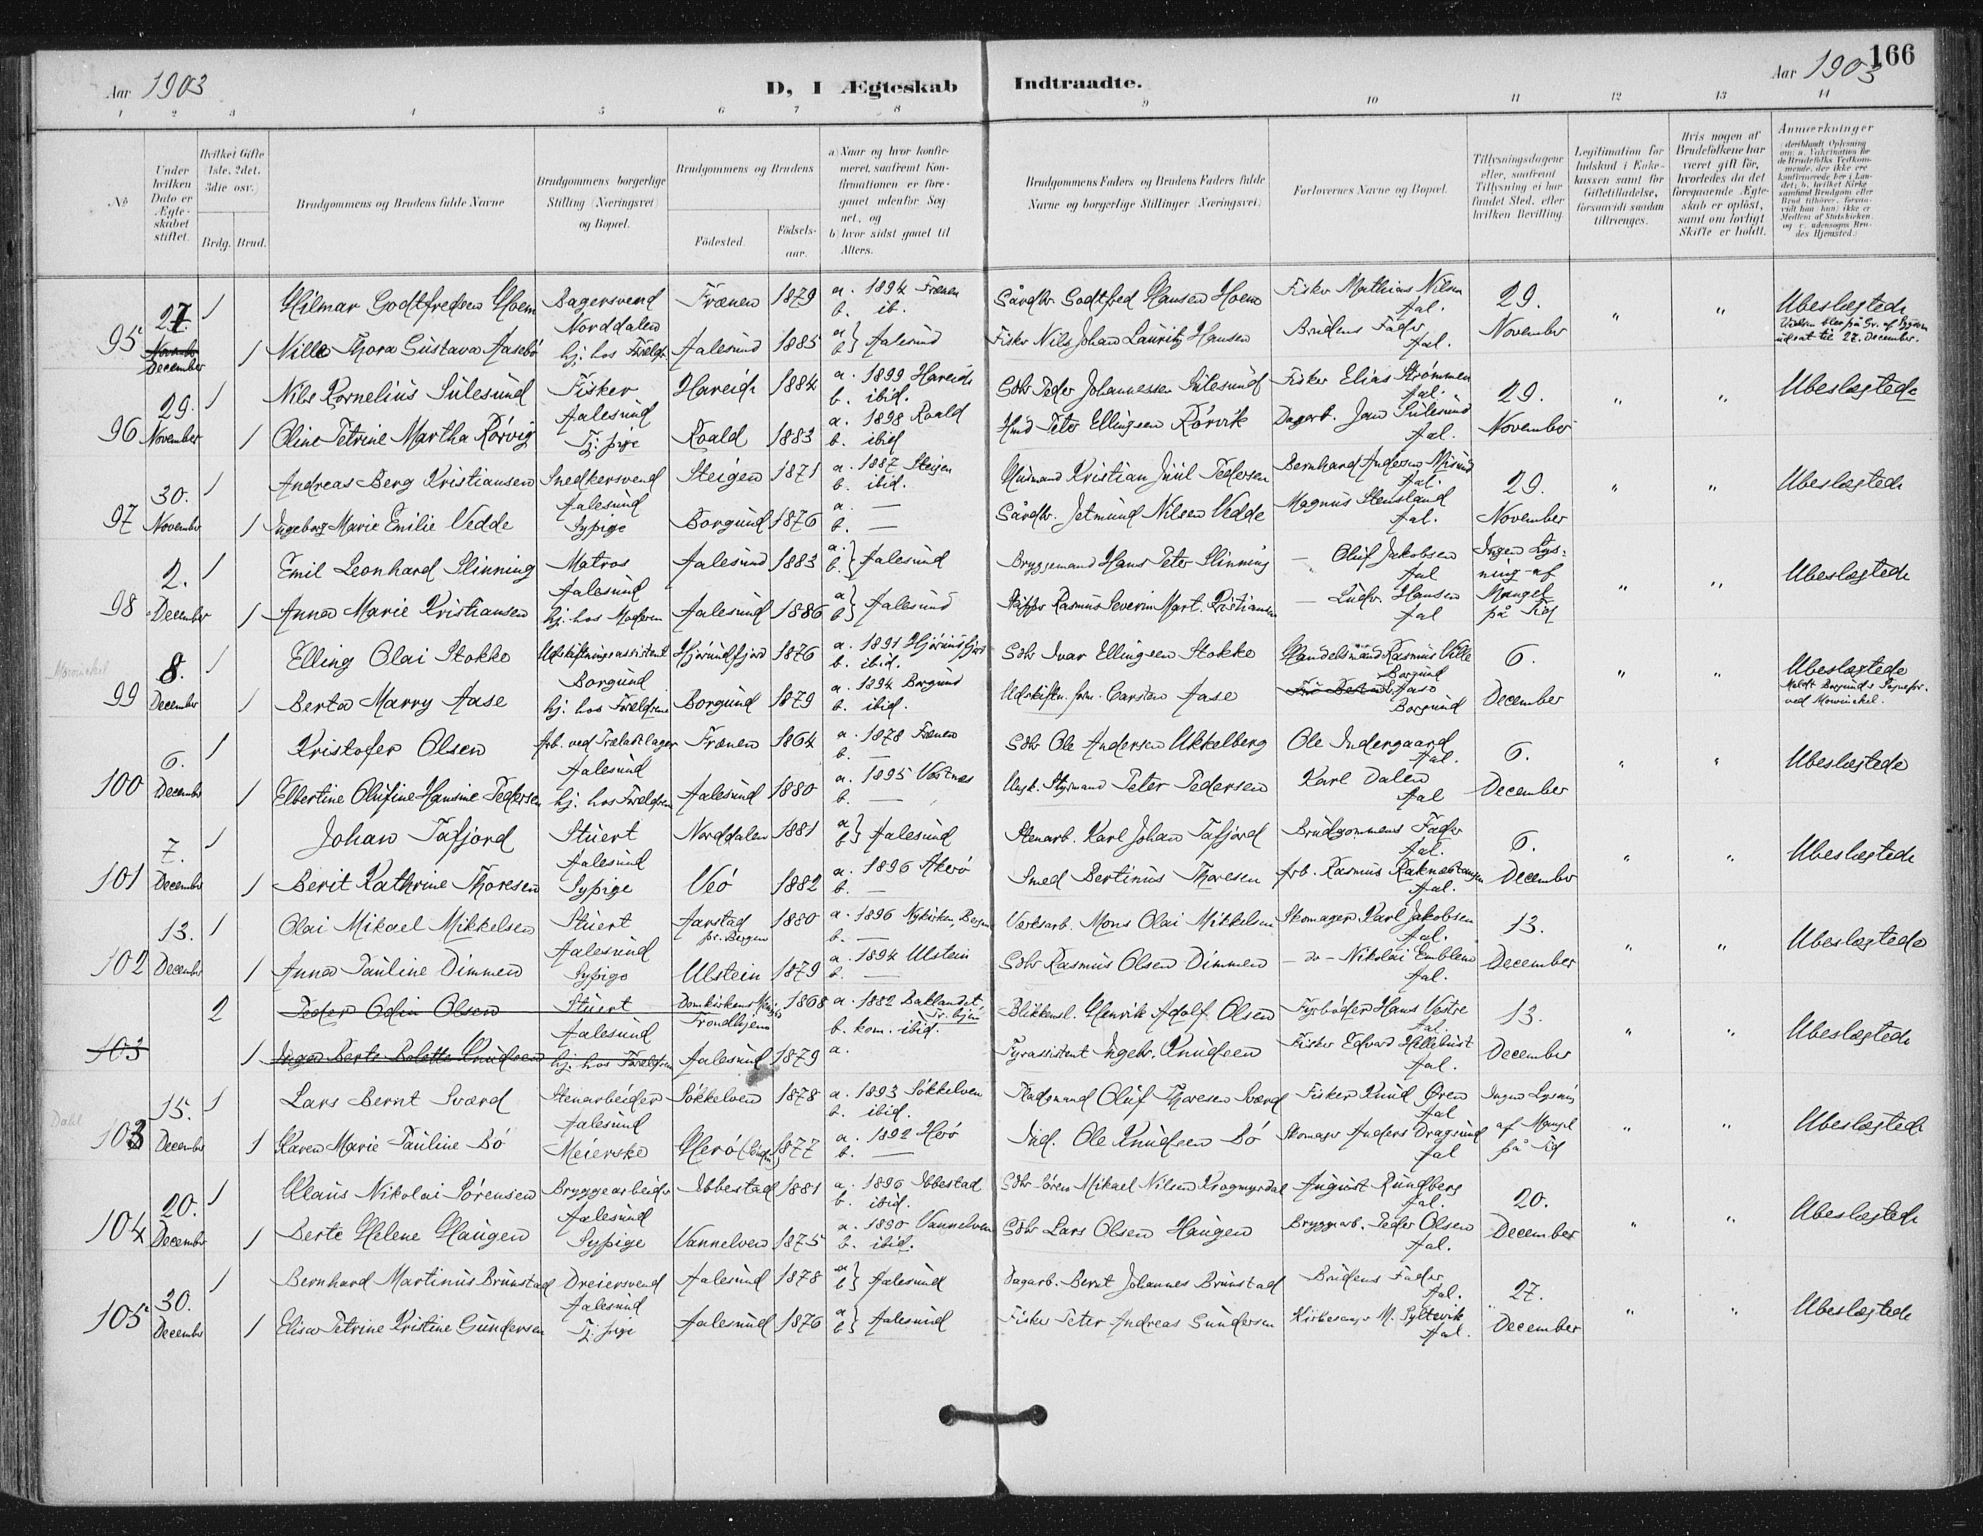 166
Aar 1903
D, I Ægteskab Indtraadte.
Aar 1903
1 2 3 4 5 6 7 8 9 10 11 12 13 14
No
Under hvilken Dato er Ægteskabet stiftet.
Hvilket Gifte 1ste, 2det, 3die osv.)
Brdg. Brud.
Brudgommens og Brudens fulde Navne
Brudgommens borgerlige Stilling (Næringsvei) og Bopæl.
Brudgommens og Brudens
Födested.
Födselsaar.
a) Naar og hvor konfirmeret, saafremt Konfirmationen er foregaaet udenfor Sognet, og
b) hvor sidst gaaet til Alters.
Brudgommens Faders og Brudens Faders fulde Navne og borgerlige Stillinger (Næringsvei)
Forlovernes Navne og Bopæl.
Tillysningsdagene eller, saafremt Tillysning ei har fundet Sted, efter hvilken Bevilling.
Legitimation for Indskud i Enkekassen samt for Giftetilladelse, forsaavidt saadan tiltrænges.
Hvis nogen af Brudefolkene har været gift för, hvorledes da det foregaaende Ægteskab er oplöst, samt om lovligt Skifte er holdt.
Anmærkninger
95 27. November December 1 Hilmar Godtfredsen Hoem Bagersvend Norddalen Frænen 1879 a. 1894 Frænen b. ib. Gårdbr. Godtfred Hansen Hoem Fisker Mathias Nilsen Aal. 29. November " " Ubeslægtede
1 Nille Thora Gustava Aasebö hj. hos Foreldr. Aalesund 1885 a b} Aalesund Fisker Nils Johan Lauritz Hansen Brudens Fader Aal. udsat til 27. December.
96 29. November 1 Nils Kornelius Sulesund Fisker Aalesund Hareid 1884 a. 1899 Hareid b. ibid. Gdbr Peder Johannessen Sulesund Fisker Elias Strømmen Aal. 29. November " " Ubeslægtede
1 Oline Petrine Martha Rørvig Tj. pige Roald 1883 a. 1898 Roald b. ibid Hmd Peter Ellingsen Rørvik Dagarb. Jan Sulesund Aal.
97 30. November 1 Andreas Berg Kristiansen Snedkersvend Aalesund Steigen 1871 a. 1887 Steigen b. ibid. Husmand Kristian Juul Pedersen Bernhard Andersen Misund Aal. 29. November " " Ubeslægtede
1 Ingeborg Marie Emilie Vedde Sypige Borgund 1876 a. — b. — Gårdbr. Jetmund Nilsen Vedde Magnus Stensland Aal.
98 2. December 1 Emil Leonhard Slinning Matros Aalesund Aalesund 1883 a. b.} Aalesund Bryggemand Hans Peter Slinning — Oluf Jakobsen Aal Ingen Lysning af Mangel på Tid " " Ubeslægtede
1 Anna Marie Kristiansen hj. hos Moderen Aalesund 1886 a b} Aalesund Rasmus Severin Mart. Kristiansen — Ludv. Hansen Aal
Mowinckel
99 8. December 1 Elling Olai Stokke Udskiftningsassistent Borgund Hjørundfjord 1876 a. 1891 Hjørundfjord b. ibid. Gdbr Ivar Ellingsen Stokke Handelsmand Rasmus Ville Borgund 6. December " " Ubeslægtede
1 Berta Marry Aase hj. hos Foreldrene Borgund 1879 a. 1894 Borgund b. ibid. Udskiftn. form. Carsten Aase Aase Borgund ved Mowinckel.
100 6. December 1 Kristofer Olsen Arb. ved Trælastlager Aalesund Frænen 1864 a. 1878 Frænen b. — Gdbr Ole Andersen Ukkelberg Ole Indergaard Aal. 6. December " " Ubeslægtede
1 Elbertine Olufine Hansine Pedersen hj. hos Foreldren Aalesund 1880 a. 1895 Vestnes b. — Styrmand Peter Pedersen Karl Dalen Aal
101 7. December 1 Johan Tafjord Stuert Aalesund Norddalen 1881 a b} Aalesund Stenarb. Karl Johan Tafjord Brudgommens Fader Aal. 6. December " " Ubeslægtede
1 Berit Kathrine Thoresen Sypige Veö 1882 a. 1896 Akerö b. — Smed Bertinus Thoresen Arb. Rasmus Raknestangen Aal.
102 13. December 1 Olai Mikael Mikkelsen Stuert Aalesund Aarstad pr. Bergen 1880 a. 1896 Nykirken, Bergen b. — Værksarb. Mons Olai Mikkelsen Skomager Karl Jakobsen Aal. 13. December " " Ubeslægtede
1 Anna Pauline Dimmen Sypige Ulstein 1879 a. 1894 Ulstein b. — Gdbr Rasmus Olsen Dimmen — do — Nikolai Emblem Aal.
103 2 Peder Odin Olsen Stuert Aalesund Domkirkens Trondhjem 1868 a. 1882 Baklandet, Tr. hjem b. kom. ibid. Blikkensl. Henrik Adolf Olsen Fyrbøder Hans Vestre Aal. 13. December " " Ubeslægtede
1 Inga Berte Bolette Knudsen hj. hos Foreldren Aalesund 1879 a. Fyrassistent Ingebr. Knudsen Fisker Edvard Hellehust Aal.
Dahl
103 15. December 1 Lars Bernt Sværd Stenarbeider Aalesund Søkkelven 1878 a. 1893 Søkkelven b. ibid. Pladsmand Oluf Thoresen Sværd Fisker Knud Øren Aal Ingen Lysning af Mangel på Tid " " Ubeslægtede
1 Karen Marie Pauline Bö Meierske Herö 1877 a. 1892 Herö b. — Ind. Ole Knudsen Bö Skomager Anders Dragsund Aal
104 20. December 1 Klaus Nikolai Sørensen Bryggearbeider Aalesund Ibbestad 1881 a. 1896 Ibbestad b. ibid. Gdbr Søren Mikael Nilsen Krogmyrdal August Rundberg Aal. 20. December " " Ubeslægtede
1 Berte Helene Haugen Sypige Vannelven 1875 a. 1890 Vannelven b. ibid. Gdbr Lars Olsen Haugen Bryggearb. Peder Olsen Aal.
105 30. December 1 Bernhard Martinus Brunstad Dreiersvend Aalesund Aalesund 1878 a b} Aalesund Dagarb. Bernt Johannes Brunstad Brudens Fader Aal. 27. December " " Ubeslægtede
1 Elisa Petrine Kristine Gundersen Tj. pige Aalesund 1876 a b} Aalesund Fisker Peter Andreas Gundersen Kirkesanger M. Syltevik Aal.